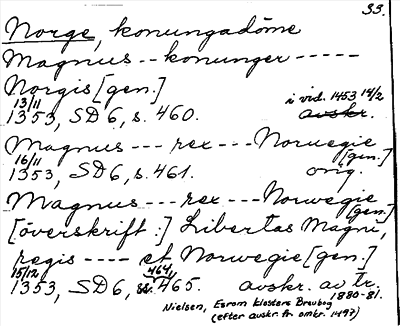 33.
Norge, konungadöme
Magnus -- konunger -----
Norgis [gen.]
13/11 i vid. 1453 14/2
1353, SD 6, s. 460. avskr.
Magnus --- rex --- Noruegie
16/11 [gen.]
1353, SD 6, s. 461. orig.
Magnus --- rex --- Norwegie
[gen.]
[överskrift:] Libertas Magni,
regis ---- et Norwegie [gen.]
15/12 464,
1353, SD 6, s. 465. avskr. av tr.
Nielsen, Esrom klosters Brevbog 1880-81.
(efter avskr. fr. omkr. 1497)